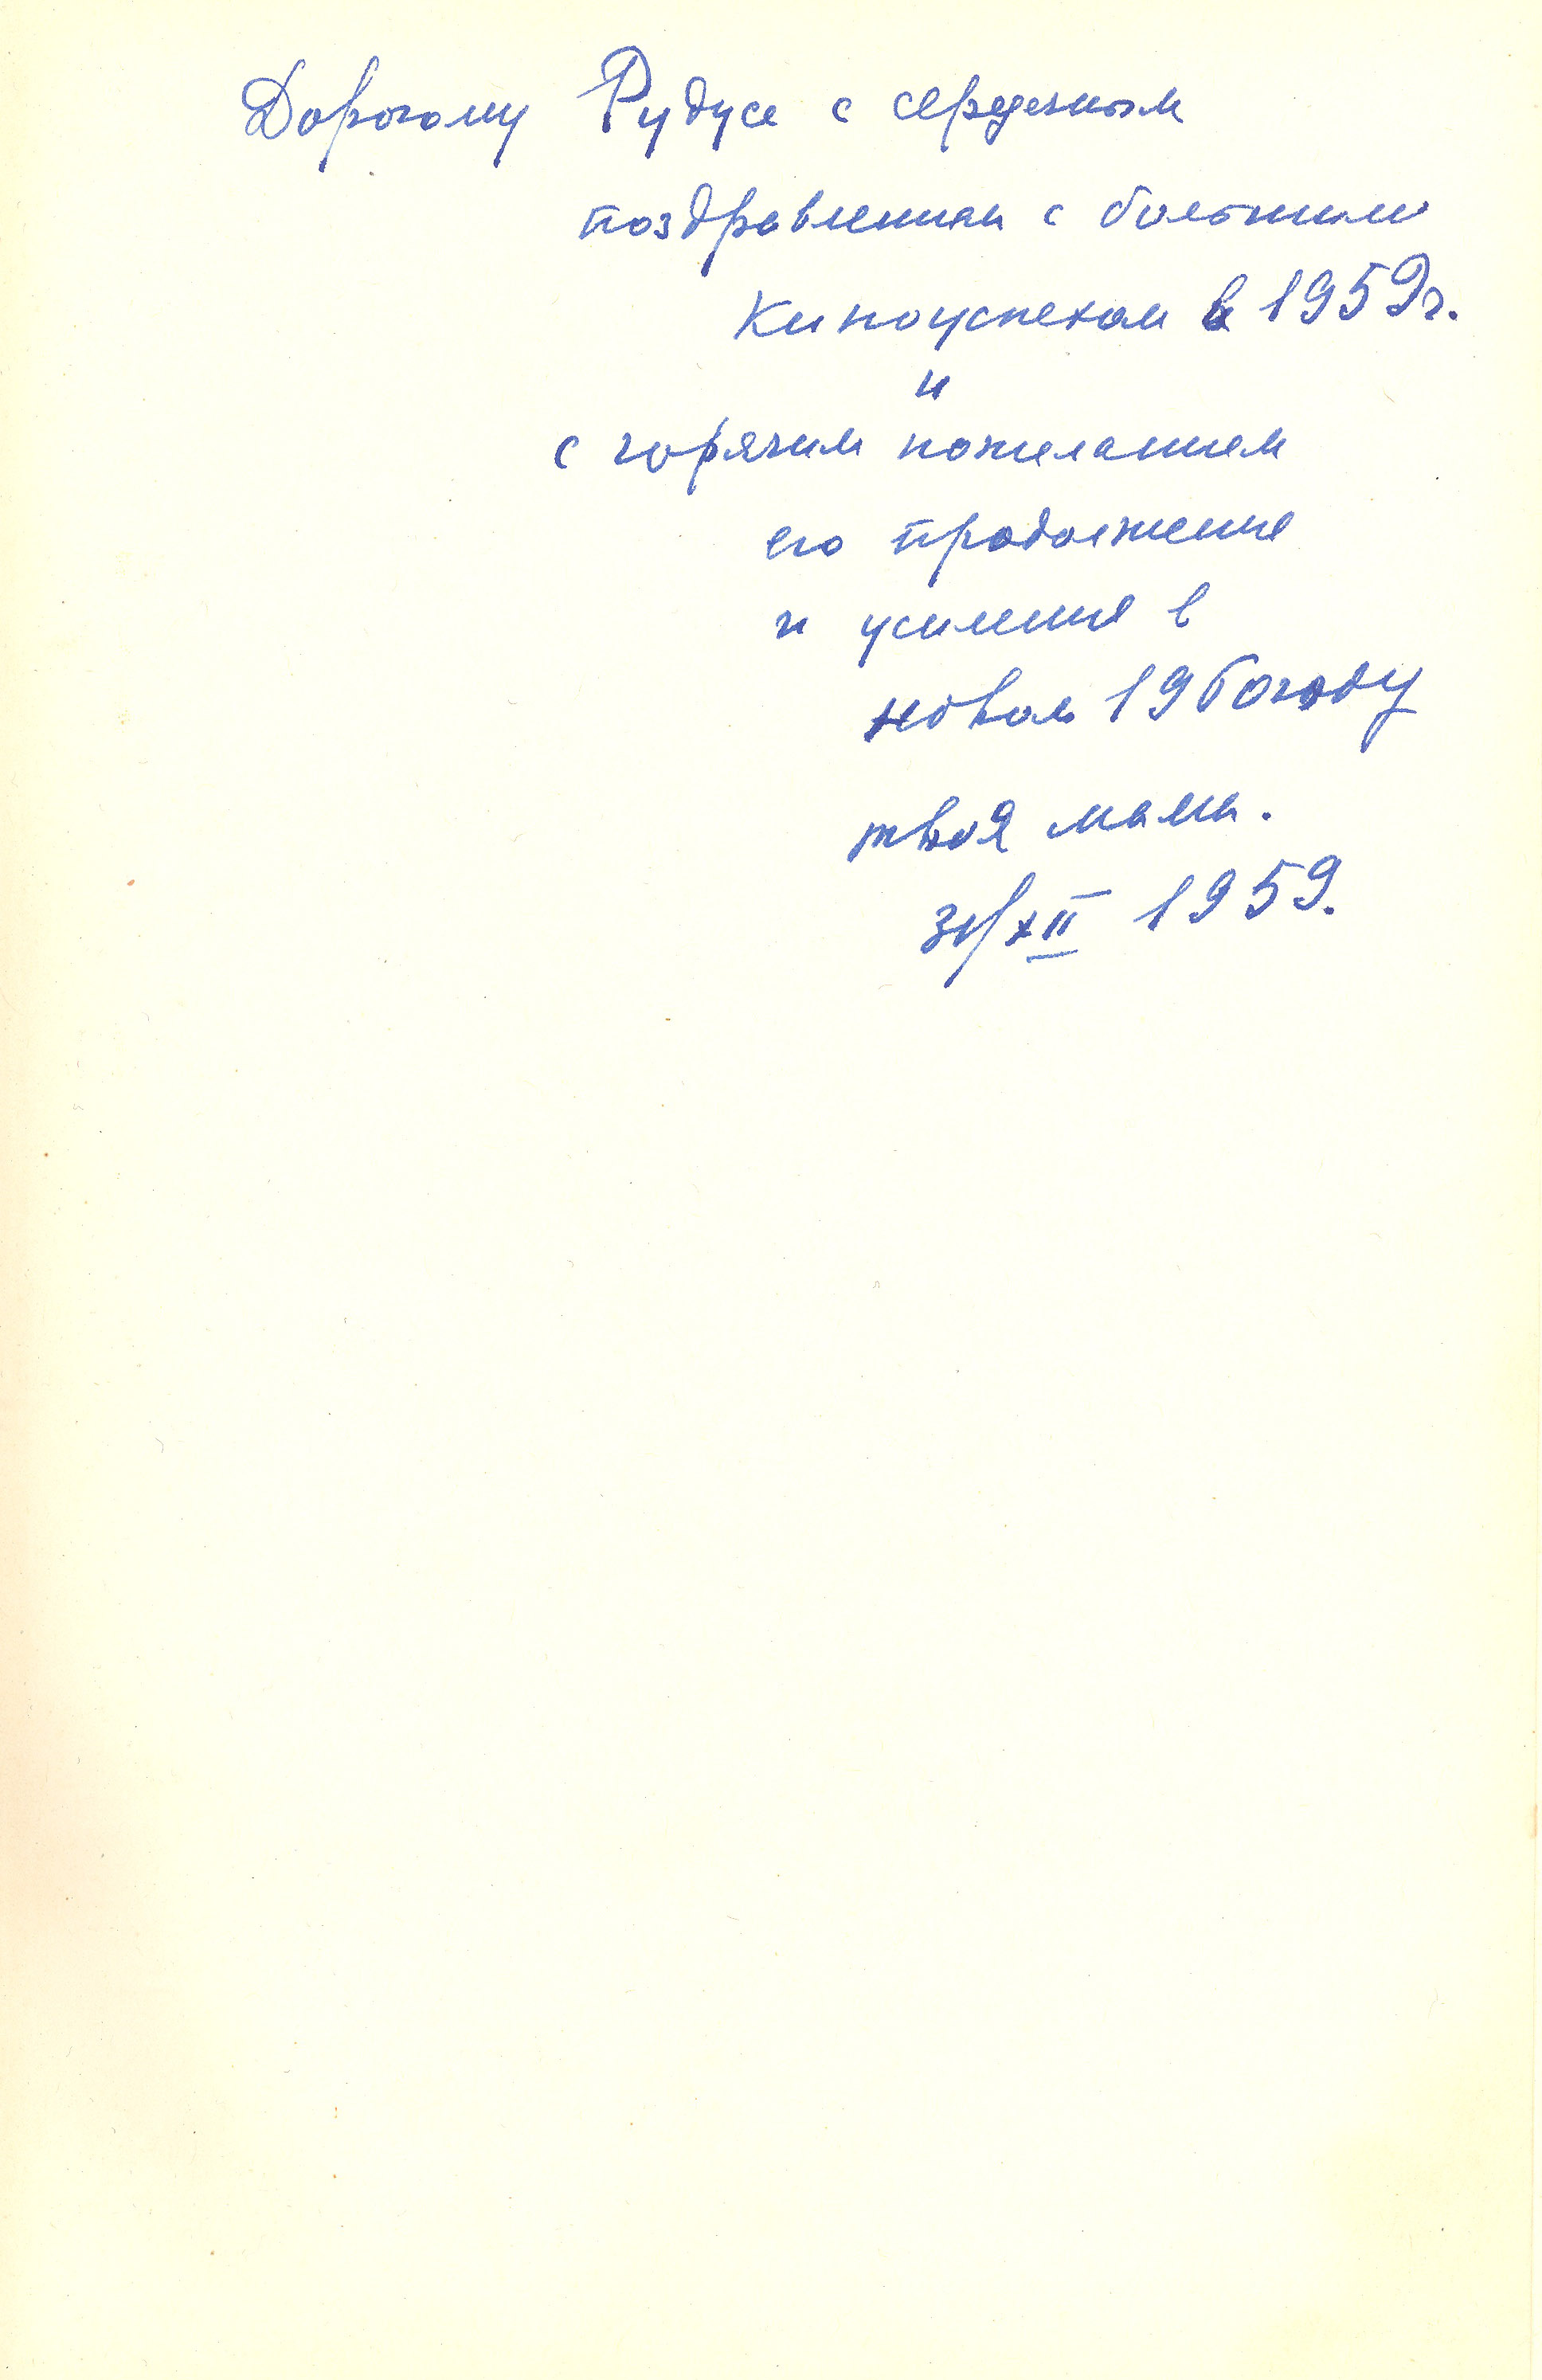 Дорогому Рудусе с сердечным
поздравлением с большим
Киноуспехом в 1959г.
и
с горячим пожеланием
его продолжения
и усиления в
новом 1960 году
твоя мама.
31/XII 1959.